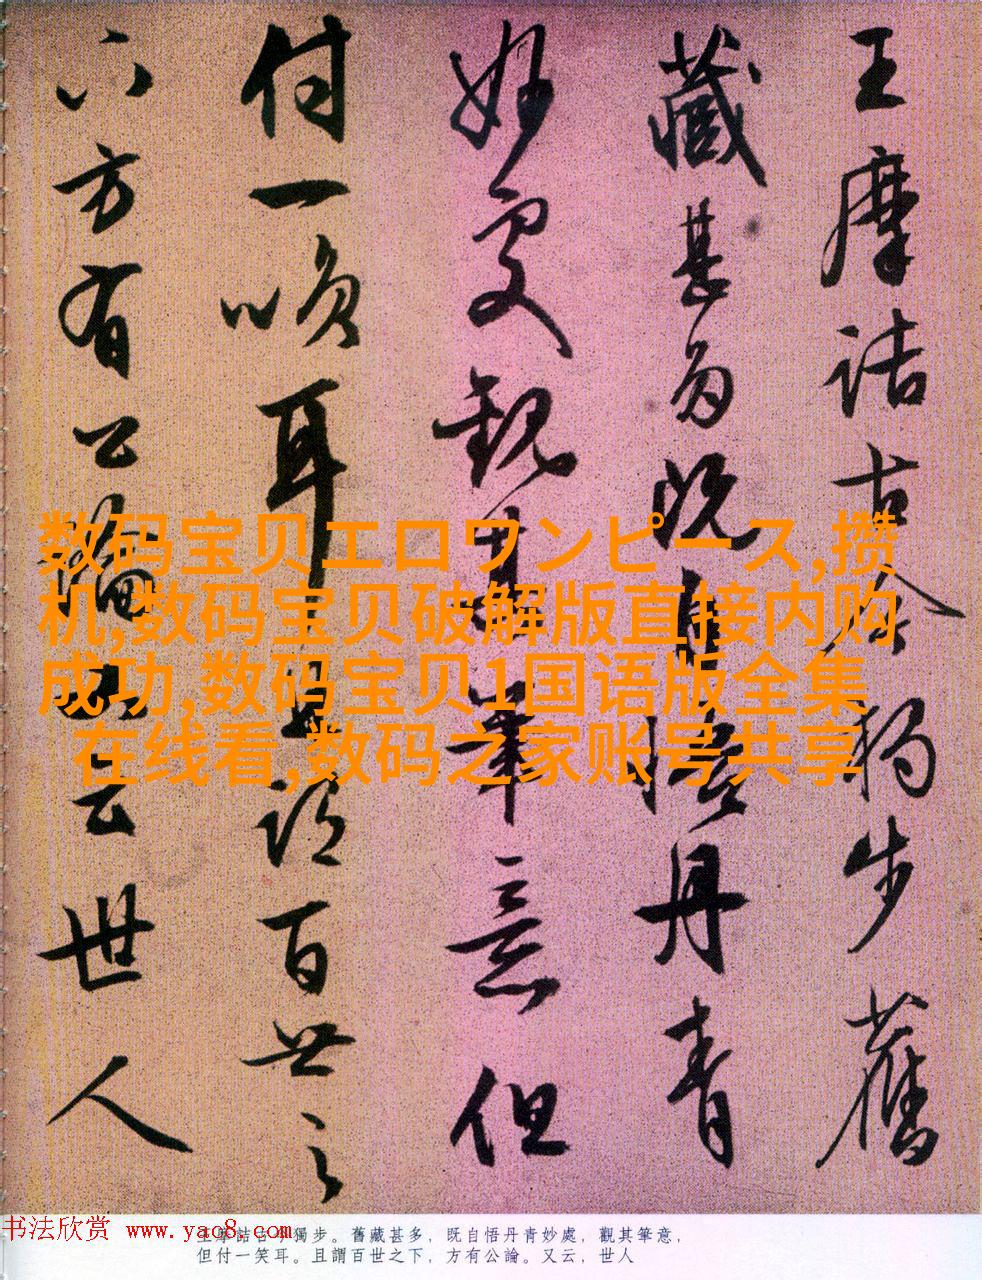 王摩詰古今獨步舊
藏甚多既自悟丹青
妙處觀其筆意但
付一笑耳且謂百世之
下方有公論又云世人
数码宝贝エロワンピース,攒
机,数码宝贝破解版直接内购
成功,数码宝贝1国语版全集
在线看,数码之家账号共享
王摩詰古今獨步。舊藏甚多，既自悟丹青妙處，觀其筆意，
但付一笑耳。且謂百世之下，方有公論。又云，世人
书法欣赏 www.yac8.com